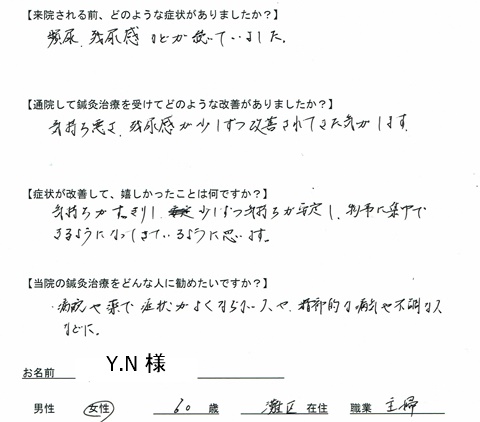 【来院される前、どのような症状がありましたか？】
頻尿、残尿感などが続いていました。
【通院して鍼灸治療を受けてどのような改善がありましたか？】
気持ち悪さ、残尿感が少しずつ改善されてきた気がします。
【症状が改善して、嬉しかったことは何ですか？】
気持ちがすっきりし、少しずつ気持ちが安定し、物事に集中で
きるようになってきているように思います。
【当院の鍼灸治療をどんな人に勧めたいですか？】
・病院や薬で症状がよくならない人や、精神的な病気や不調な人
などに。
お名前 Y.N 様
男性 女性 60 歳 灘区 在住 職業 主婦